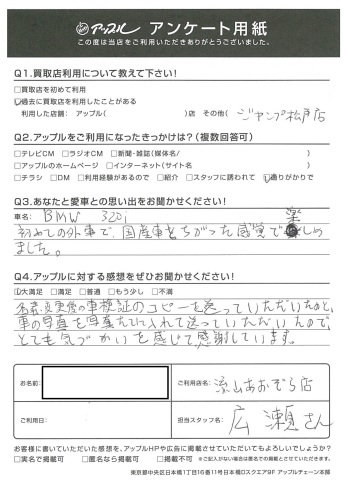 アップル アンケート用紙
この度は当店をご利用いただきありがとうございました。
Q1.買取店利用について教えて下さい!
□買取店を初めて利用
☑過去に買取店を利用したことがある
利用した店舗: アップル( )店 その他( ジャンプ松戸店
Q2.アップルをご利用になったきっかけは?(複数回答可)
□テレビCM □ラジオCM □新聞・雑誌(媒体名/ )
□アップルのホームページ □インターネット(サイト名 )
□チラシ □DM □利用経験があるので □紹介 □スタッフに誘われて ☑通りがかりで
Q3.あなたと愛車との思い出をお聞かせください!
車名: BMW 320i
初めての外車で、国産車とちがった感覚で楽しめ
ました。
Q4.アップルに対する感想をぜひお聞かせください!
☑大満足 □満足 □普通 □もう少し □不満
名義変更後の車検証のコピーを送っていただいたのと、
車の写真を写真たてに入れて送っていただいたので、
とても気づかいを感じて感謝しています。
お名前:
ご利用店名: 流山あおぞら店
ご利用日:
担当スタッフ名: 広瀬さん
お客様に書いていただいた感想を、アップルHPや広告に掲載させていただいてもよろしいでしょうか?
□実名で掲載可 □匿名なら掲載可 □掲載不可 ※ご記入がない場合は匿名での掲載とさせていただきます。
東京都中央区日本橋1丁目16番11号日本橋Dスクエア9F アップルチェーン本部